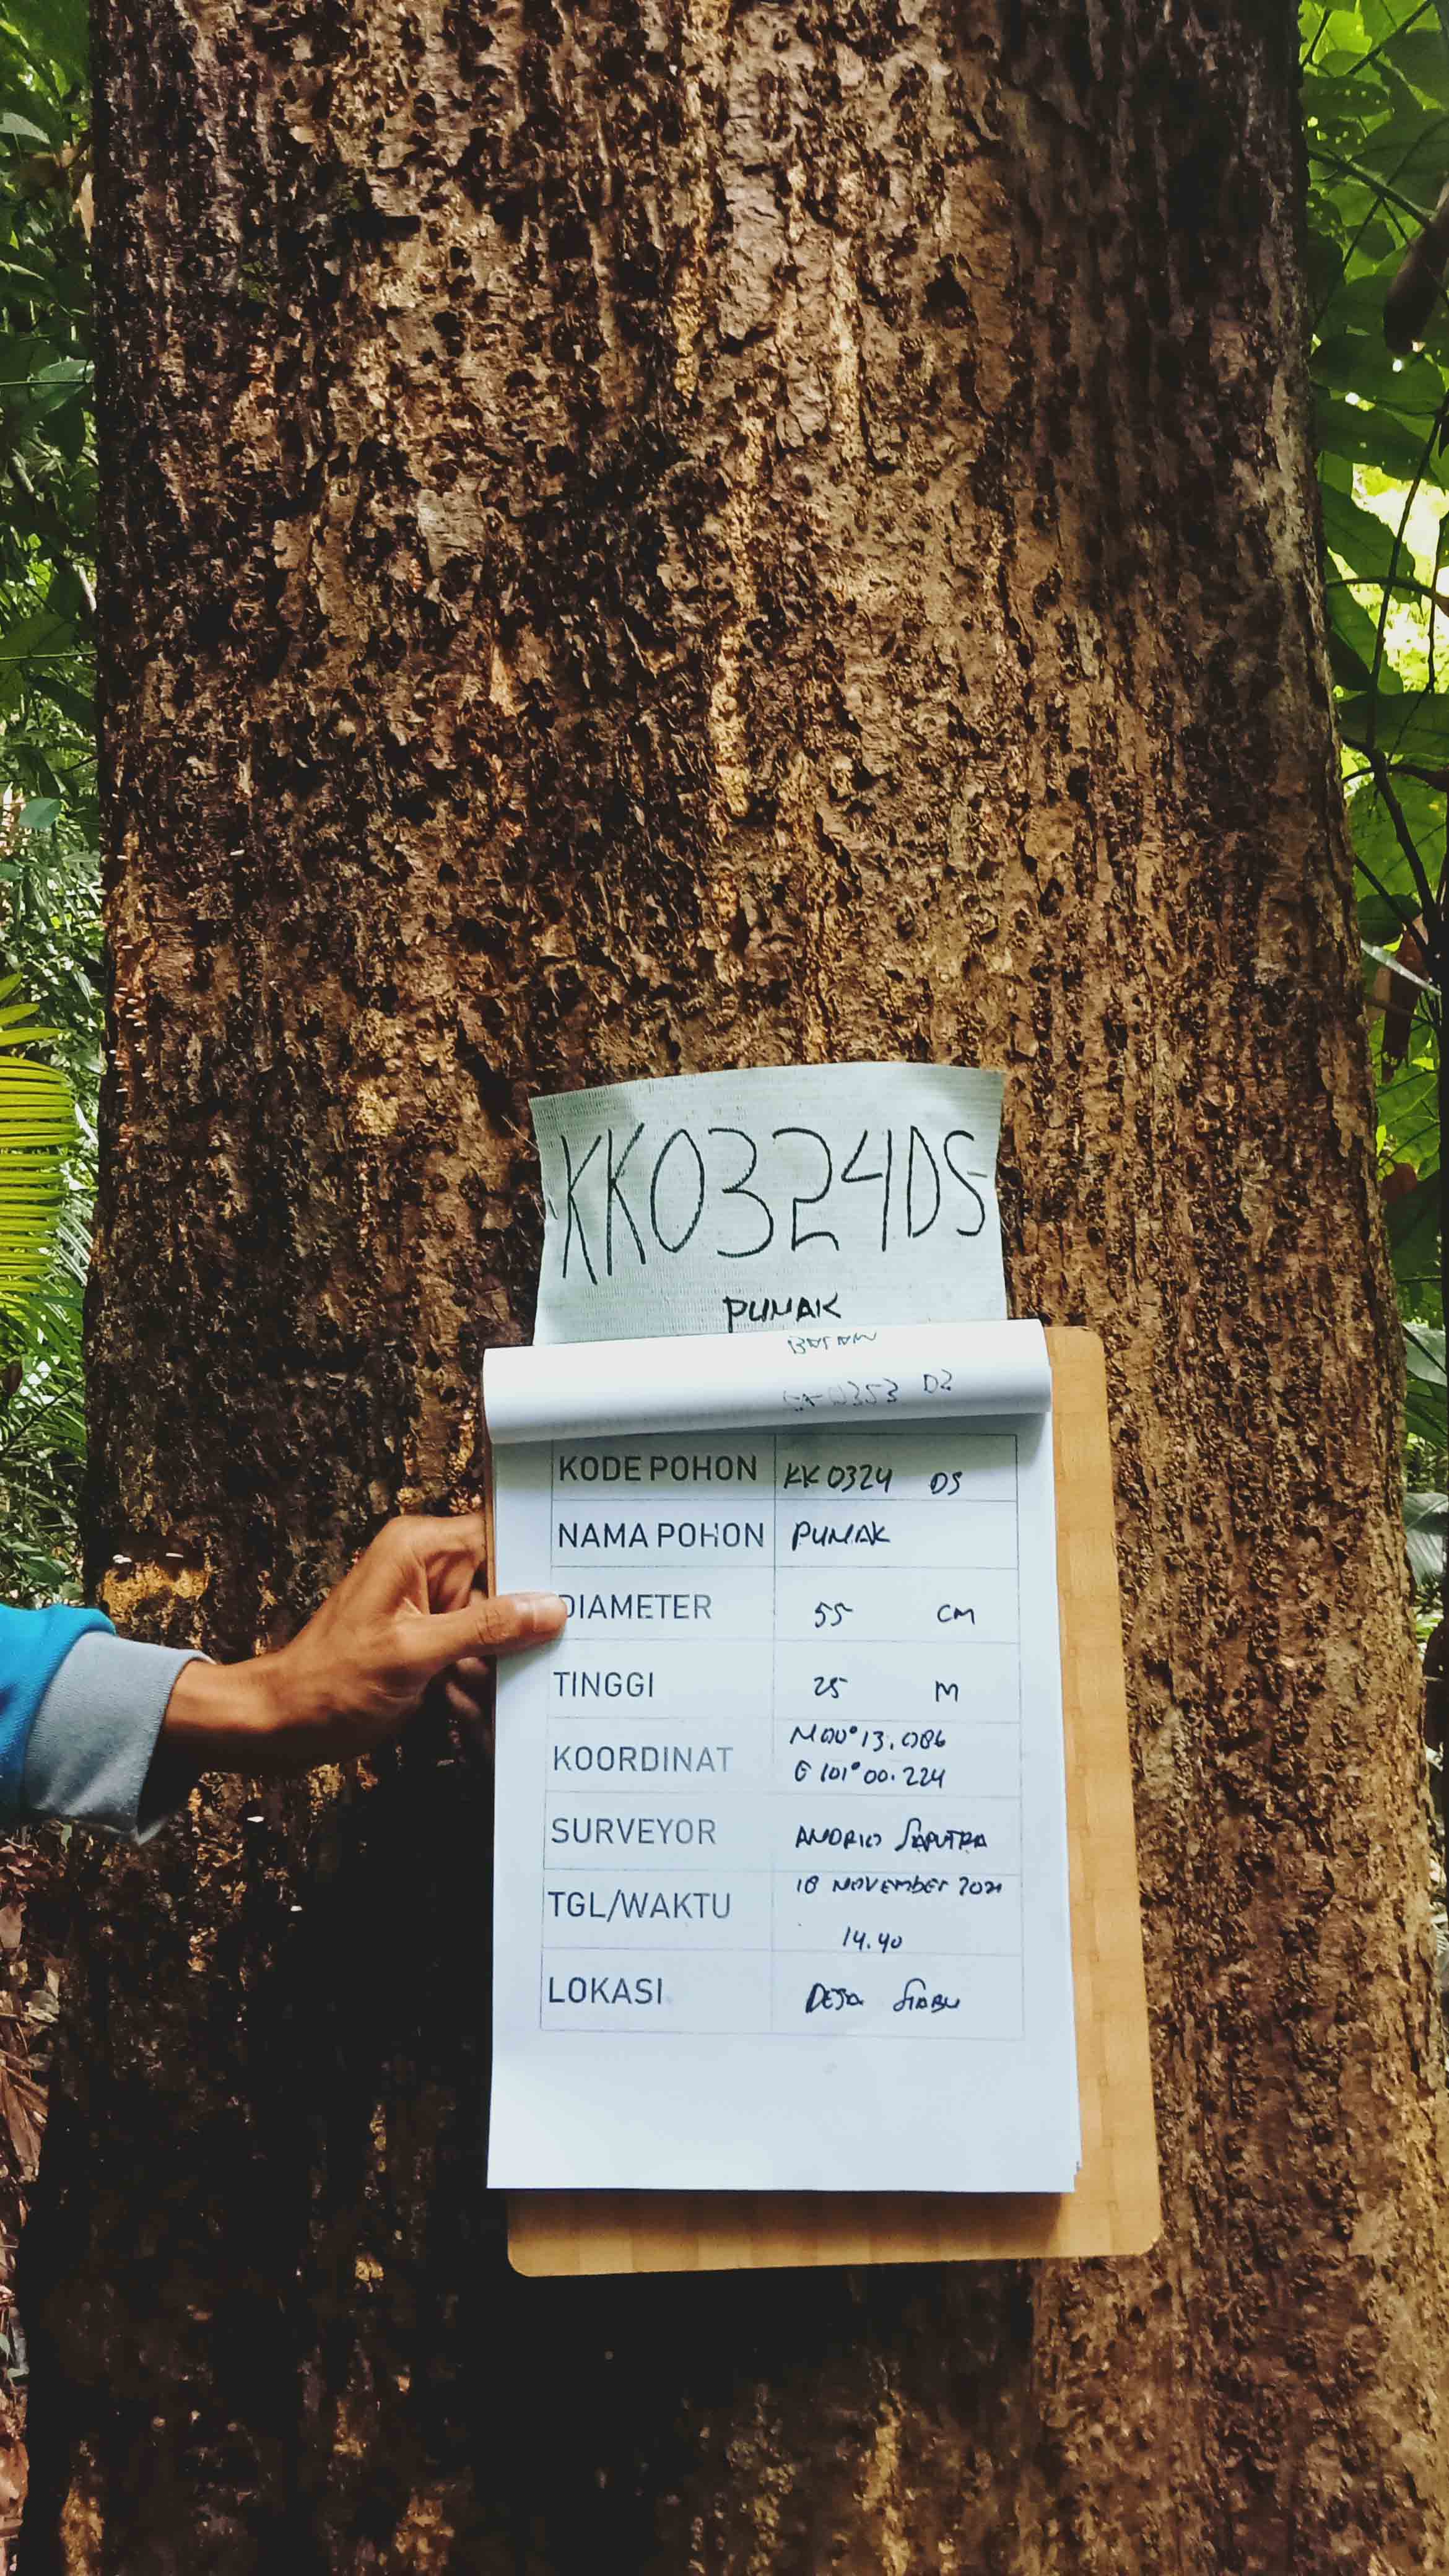 KK0324DS
PUNAK
0353 D2
KODE POHON KK 0324 DS
NAMA POHON PUNAK
DIAMETER 55 CM
TINGGI 25 M
KOORDINAT N 00° 13.086
E 101° 00.224
SURVEYOR SAPUTRA
TGL/WAKTU 18 NOVEMBER 2021
14.40
LOKASI DESA SIABU